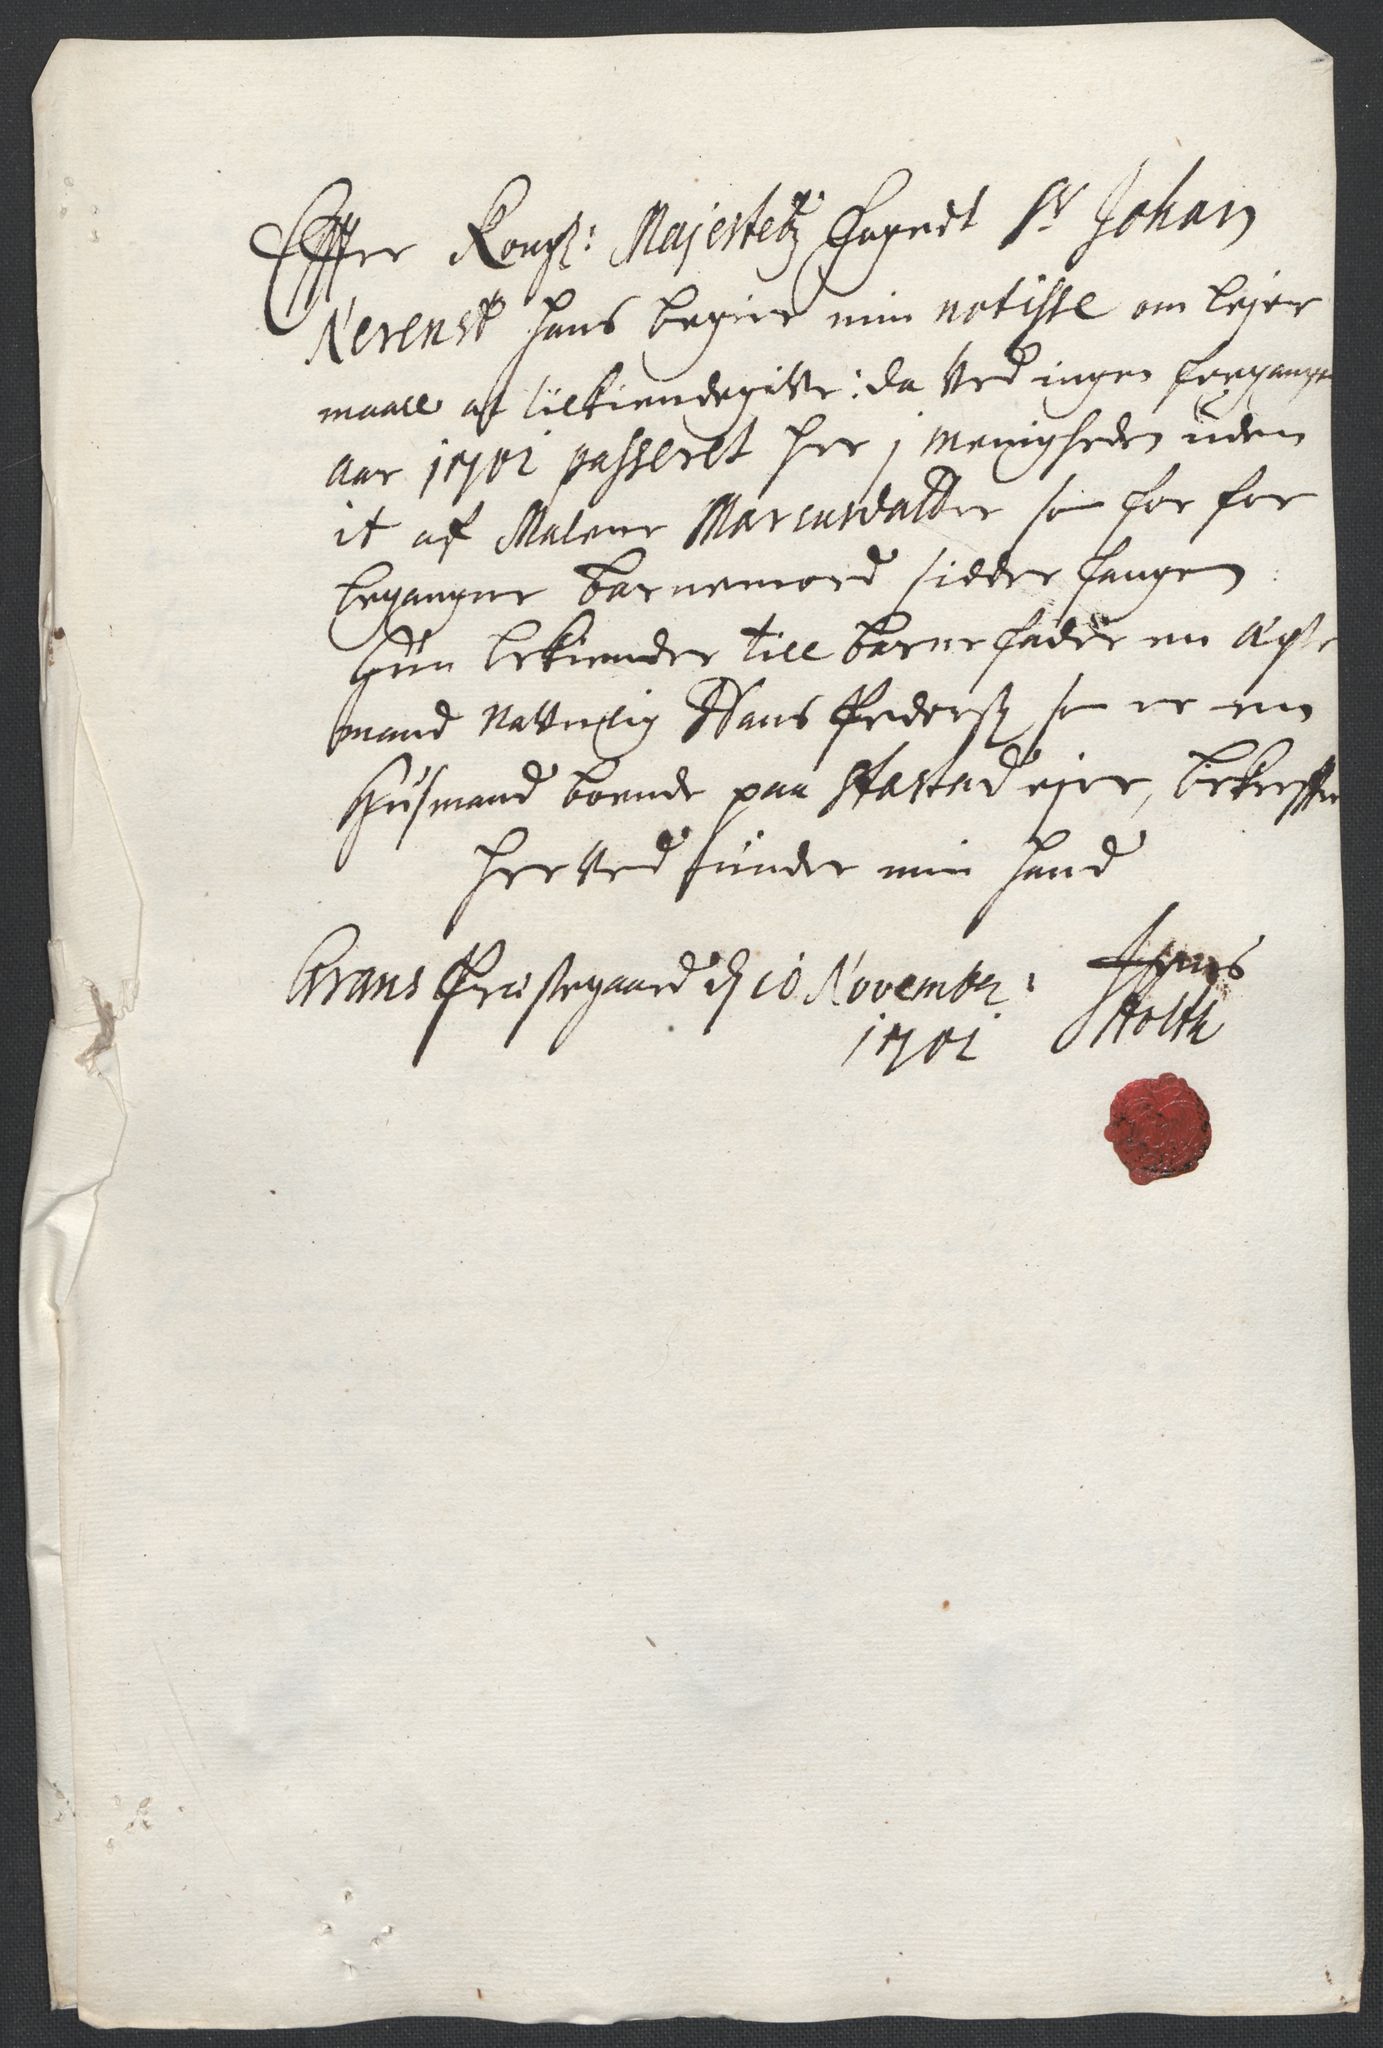 Effter Kongl: Majestetz Fogedt Sr Johan
Nerenst hans begier min notisse om lejer
maall at tilkiendegifve: da ved ingen forgangen
aar 1701 passeret her j Menigheden uden
it af Malene Marcusdatter som for for
begangne barnemord sidder fangen:
Hun bekiender till barnefader en Ægte
mand Nafnlig Hans Pedersz som er en
Huusmand boende paa Stastad ejer, bekreffter
her ved under min Haand
Grans Præstegaard d 10 Novembr:
1701
Jens
Holth